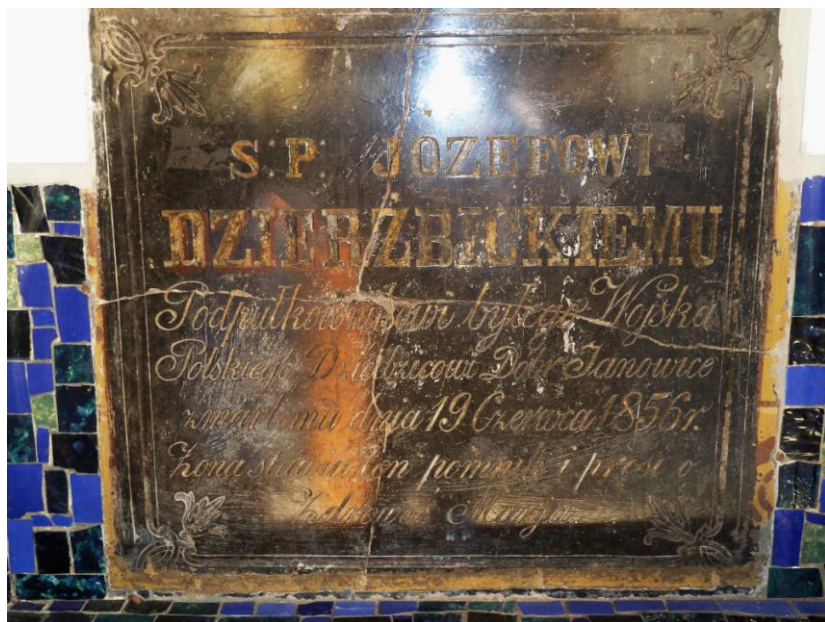 S:P: JÓZEFOWI
DZIERŻBICKIEMU
Podpułkownikowi byłego Wojska
Polskiego Dziedzicowi Dóbr Janowice
zmarłemu dnia 19 Czerwca 1856 r.
Żona stawia ten pomnik i prosi o
Zdrowaś Marya